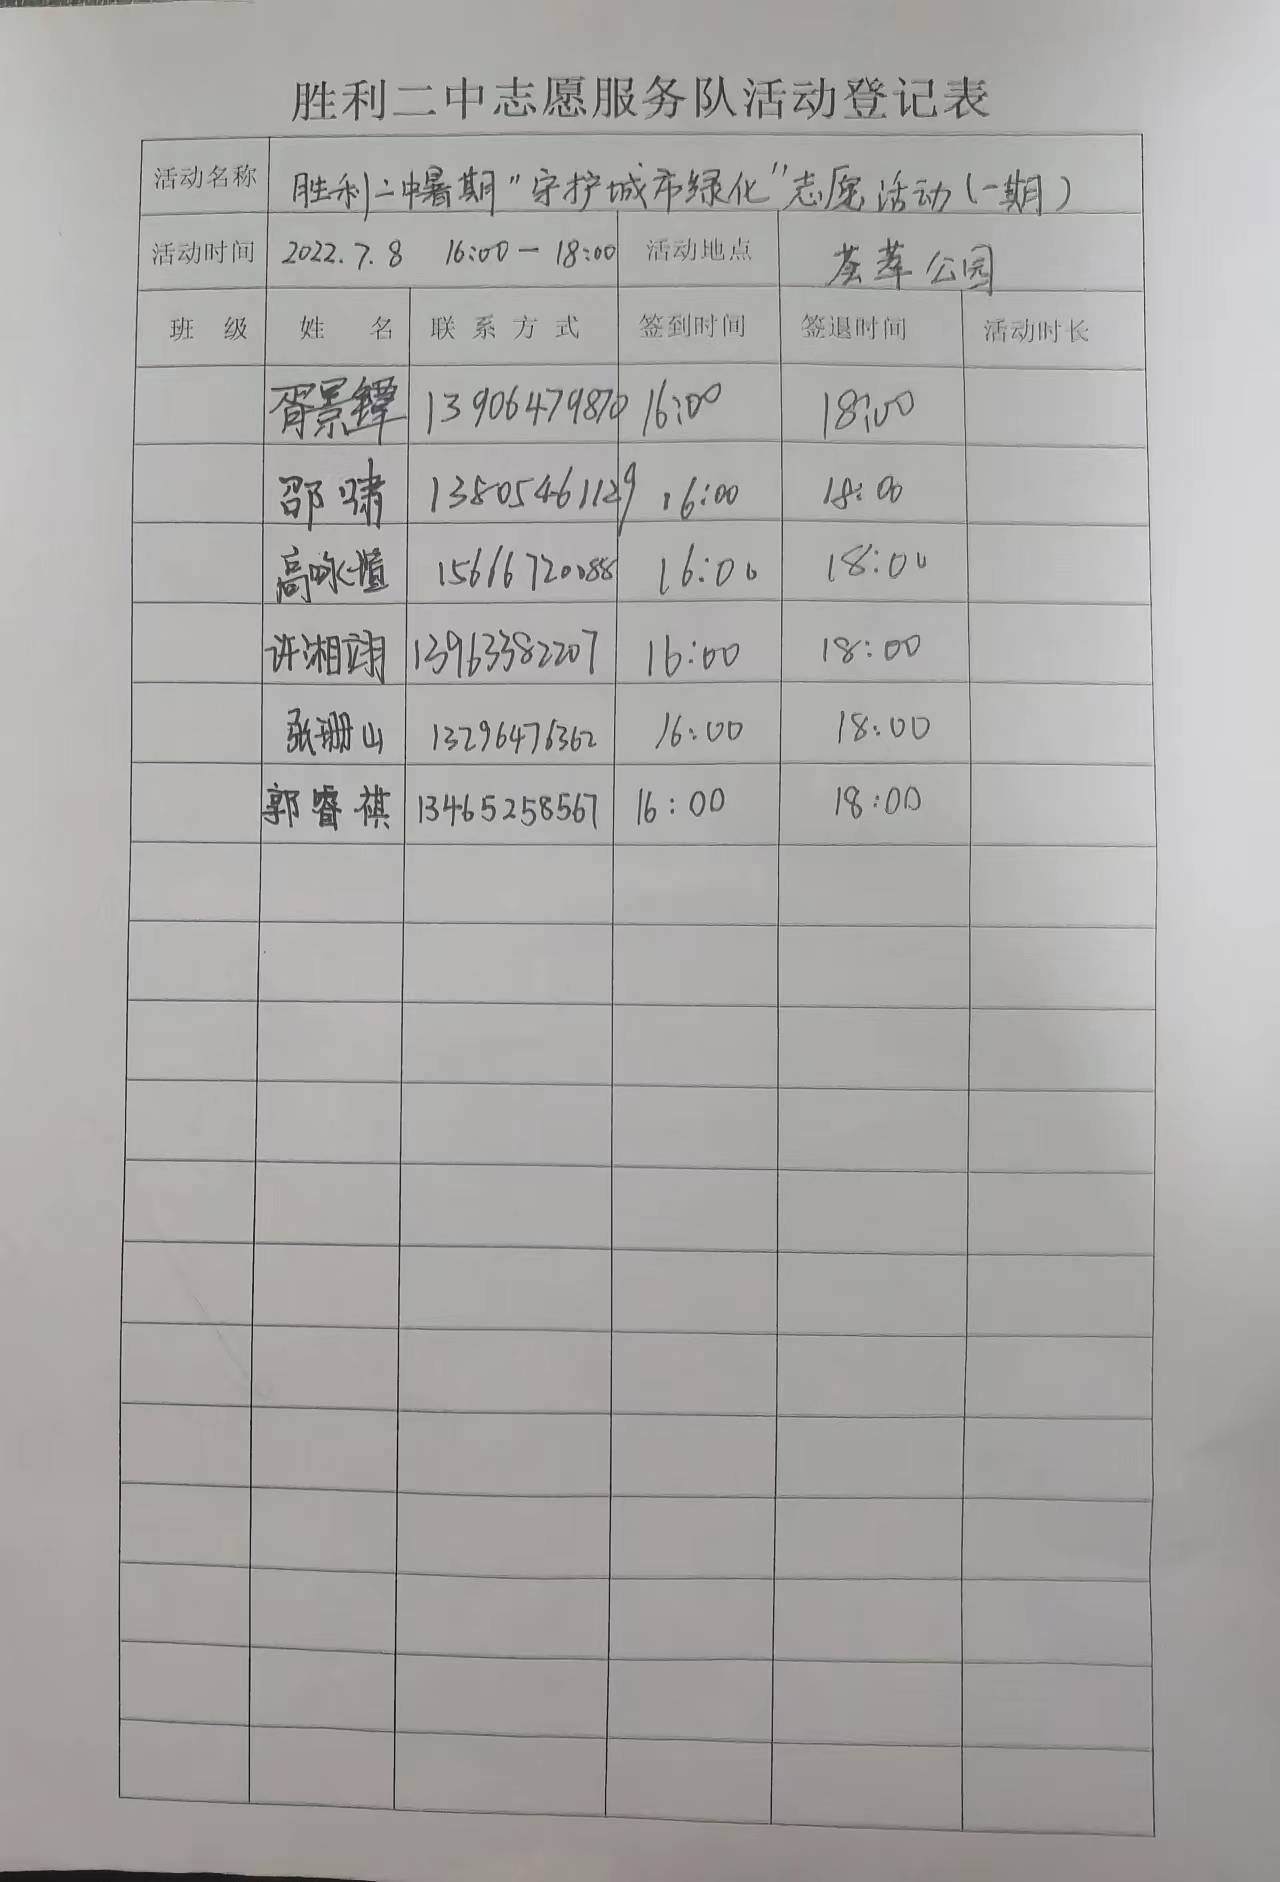 胜利二中志愿服务队活动登记表
活动名称 胜利二中暑期"守护城市绿化"志愿活动(一期)
活动时间 2022.7.8 16:00-18:00 活动地点 荟萃公园
班 级 姓 名 联系方式 签到时间 签退时间 活动时长
胥景铎 13906479870 16:00 18:00
邵啸 13805461129 16:00 18:00
高咏 15666720088 16:00 18:00
许湘翊 13963382207 16:00 18:00
张珊山 13296476362 16:00 18:00
郭睿祺 13465258567 16:00 18:00